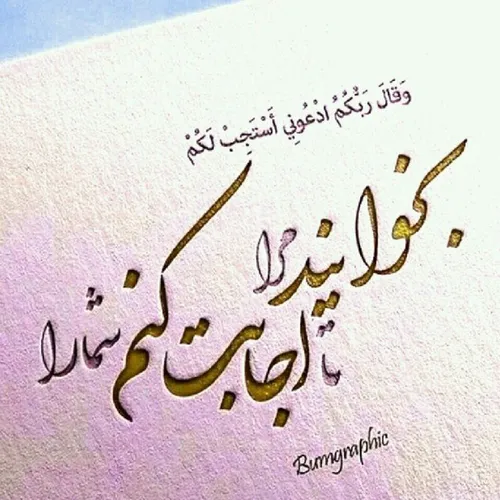 وَقَالَ رَبُّكُمُ ادْعُونِي أَسْتَجِبْ لَكُمْ
بخوانید مرا
تا اجابت کنم شمارا
Bumgraphic